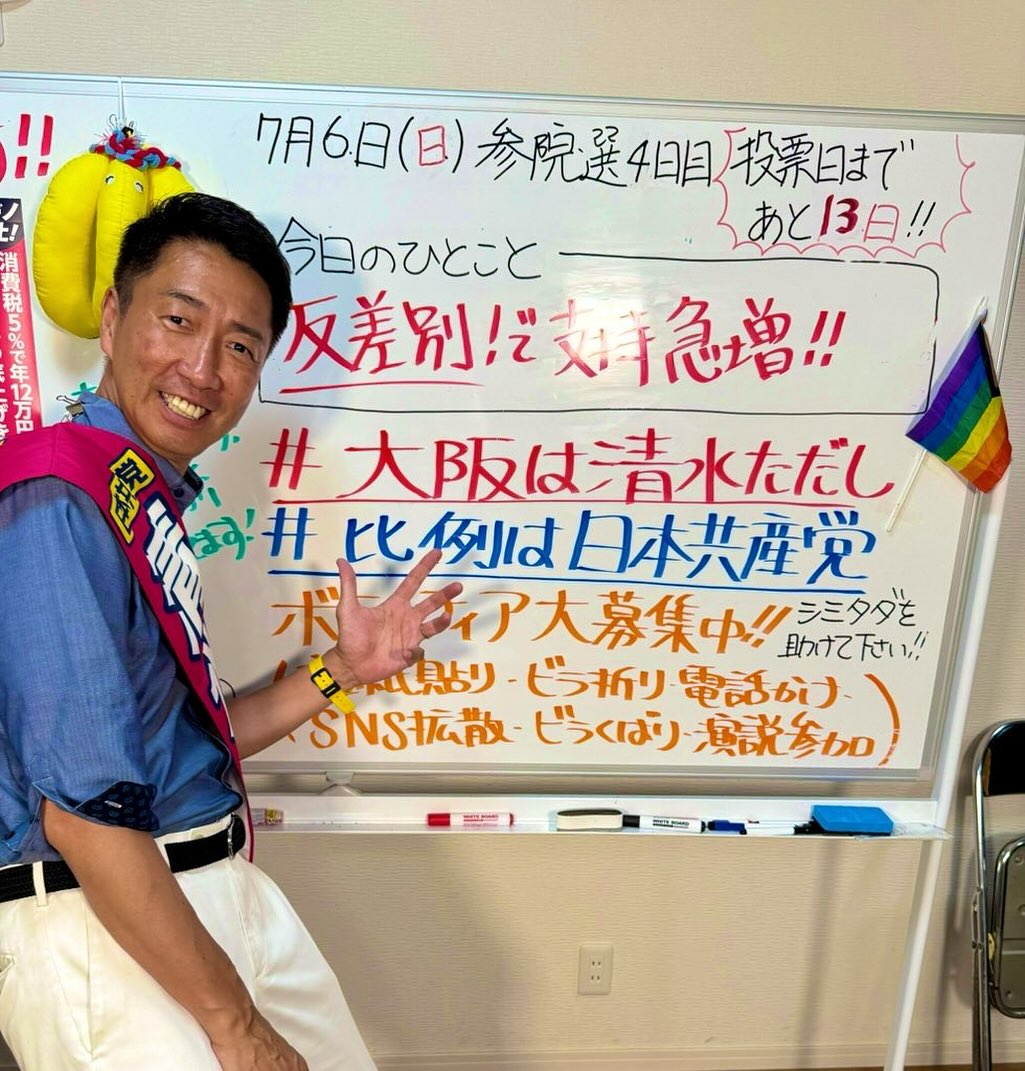 7月6日(日)参院選4日目
投票日まで
あと13日!!
今日のひとこと
反差別!で支持急増!!
#大阪は清水ただし
#比例は日本共産党
ボ ィア大募集中!!
シミタダを
助けて下さい!!
貼り・ビラ折り・電話かけ・
SNS拡散・ビラくばり・演説参加)
!!
消費税5%で年12万円
ます!
WHITE BOARD
WHITE BOARD